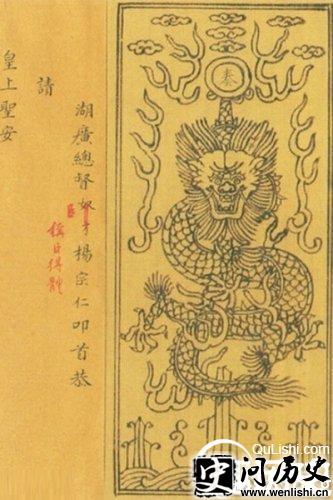 奏
湖廣總督奴才楊宗仁叩首恭
臣
稱臣得體
請
皇上聖安
QuLishi.com
问历史
www.wenlishi.cn